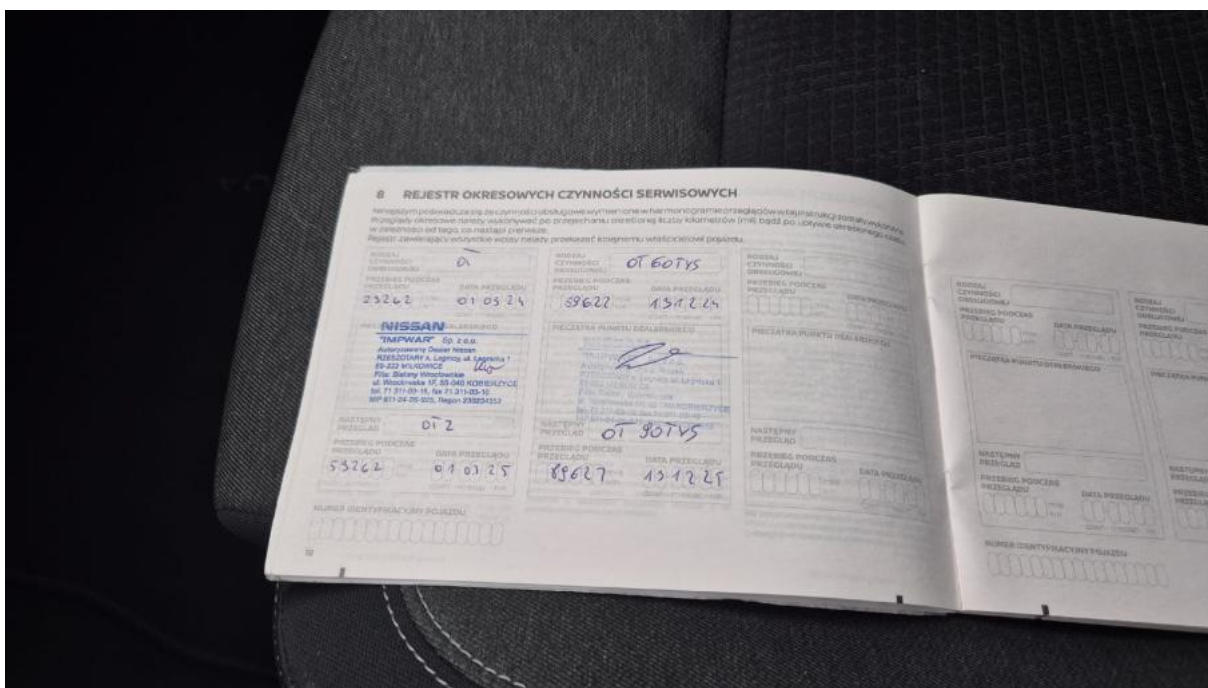 8 REJESTR OKRESOWYCH CZYNNOŚCI SERWISOWYCH
Niniejszym poświadcza się, że czynności obsługowe wymienione w harmonogramie przeglądów w tej instrukcji zostały wykonane.
Przeglądy okresowe należy wykonywać po przejechaniu określonej liczby kilometrów (mil) bądź po upływie określonego czasu,
w zależności od tego, co nastąpi pierwsze.
Rejestr zawierający wszystkie wpisy należy przekazać kolejnemu właścicielowi pojazdu.
RODZAJ
CZYNNOŚCI
OBSŁUGOWEJ
PRZEBIEG PODCZAS
PRZEGLĄDU
DATA PRZEGLĄDU
23262
01 03 24
NISSAN
"IMPWAR" Sp. z o.o.
Autoryzowany Dealer Nissan
RZESZOTARY k. Legnicy, ul. Legnicka 1
59-222 MIŁKOWICE
Filia: Bielany Wrocławskie
ul. Wrocławska 1F, 55-040 KOBIERZYCE
tel. 71 311-03-15, fax 71 311-03-10
NASTĘPNY
PRZEGLĄD
OT 2
PRZEBIEG PODCZAS
PRZEGLĄDU
DATA PRZEGLĄDU
53262
01 03 25
NUMER IDENTYFIKACYJNY POJAZDU
18
RODZAJ
CZYNNOŚCI
OBSŁUGOWEJ
OT 60TYS
PRZEBIEG PODCZAS
PRZEGLĄDU
DATA PRZEGLĄDU
59627
13 12 24
PIECZĄTKA PUNKTU DEALERSKIEGO
NASTĘPNY
PRZEGLĄD
OT 90TYS
PRZEBIEG PODCZAS
PRZEGLĄDU
DATA PRZEGLĄDU
89627
13 12 25
RODZAJ
CZYNNOŚCI
OBSŁUGOWEJ
PRZEBIEG PODCZAS
PRZEGLĄDU
DATA PRZEGLĄDU
PIECZĄTKA PUNKTU DEALERSKIEGO
NASTĘPNY
PRZEGLĄD
PRZEBIEG PODCZAS
PRZEGLĄDU
DATA PRZEGLĄDU
RODZAJ
CZYNNOŚCI
OBSŁUGOWEJ
PRZEBIEG PODCZAS
PRZEGLĄDU
DATA PRZEGLĄDU
PIECZĄTKA PUNKTU DEALERSKIEGO
NASTĘPNY
PRZEGLĄD
PRZEBIEG PODCZAS
PRZEGLĄDU
DATA PRZEGLĄDU
NUMER IDENTYFIKACYJNY POJAZDU
RODZAJ
CZYNNOŚCI
OBSŁUGOWEJ
PRZEBIEG PODCZAS
PRZEGLĄDU